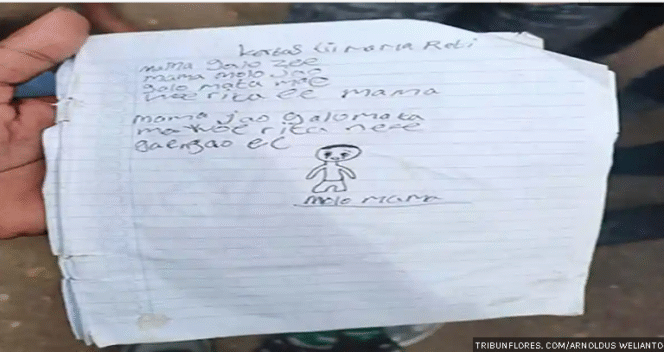 Kertas Tii mama Reti
mama galo zee
mama molo jao
galo mata mae
woe rita ee mama
mama jao galo mata
mae woe rita ne'e
gae ngao ee
molo mama
TRIBUNFLORES. COM/ARNOLDUS WELIANTO